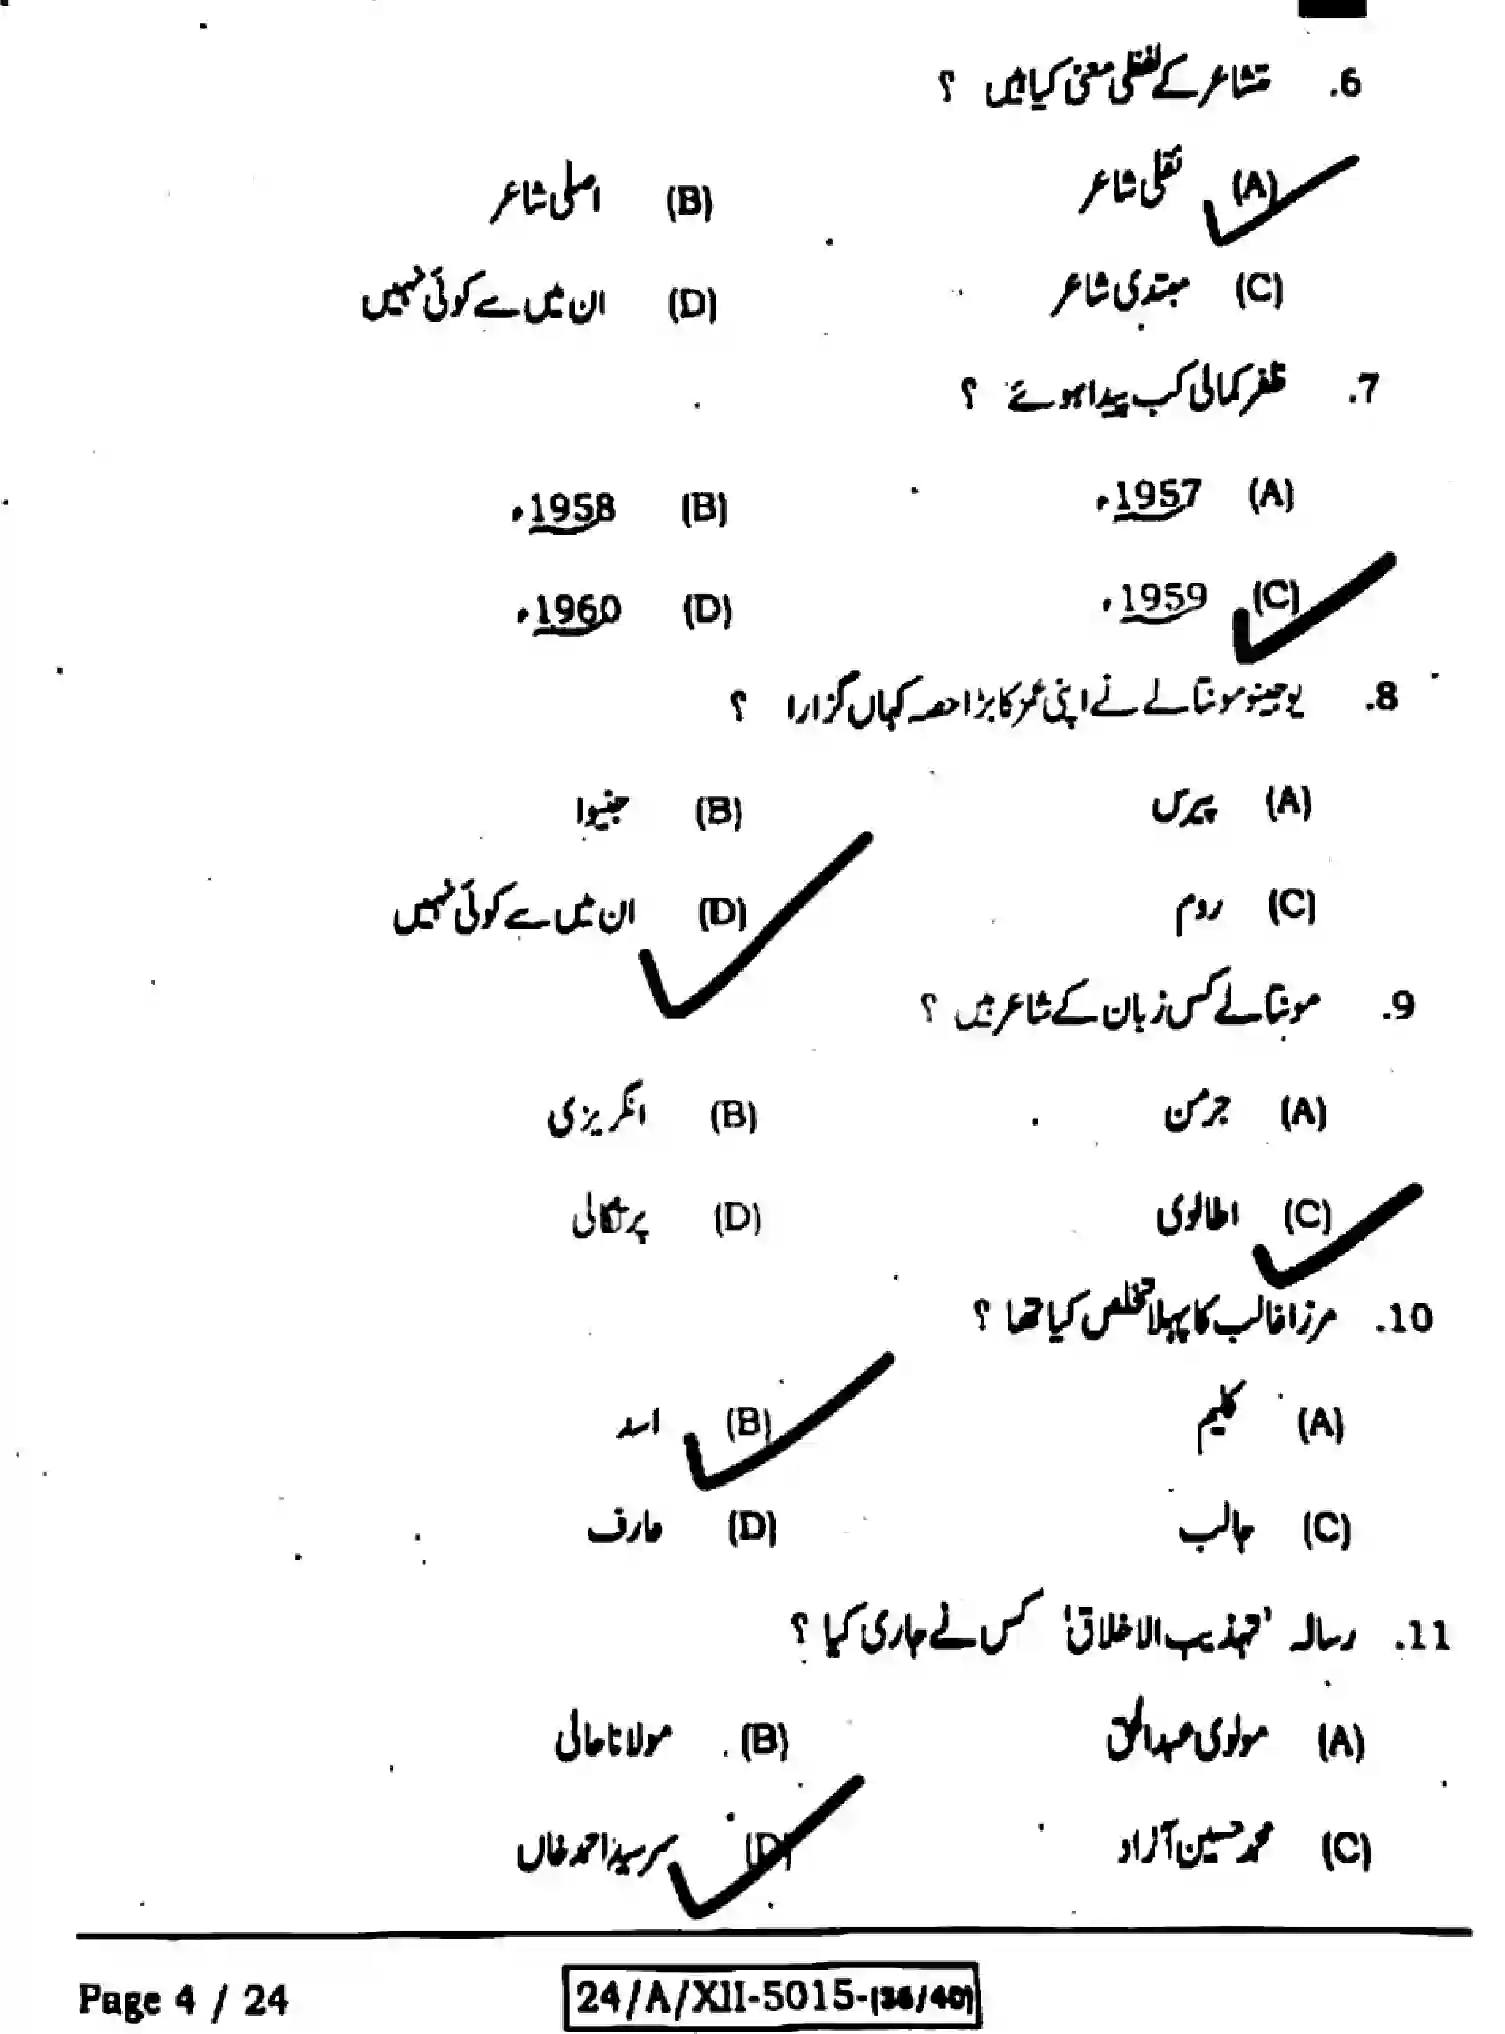 6. متشاعر کے لفظی معنی کیا ہیں ؟
(A) نقلی شاعر (B) اصلی شاعر
(C) مبتدی شاعر (D) ان میں سے کوئی نہیں
7. ظفر کمالی کب پیدا ہوئے ؟
(A) 1957ء (B) 1958ء
(C) 1959ء (D) 1960ء
8. یوجینو مونتالے نے اپنی عمر کا بڑا حصہ کہاں گزارا ؟
(A) پیرس (B) جنیوا
(C) روم (D) ان میں سے کوئی نہیں
9. مونتالے کس زبان کے شاعر ہیں ؟
(A) جرمن (B) انگریزی
(C) اطالوی (D) پرتگالی
10. مرزا غالب کا پہلا تخلص کیا تھا ؟
(A) کلیم (B) اسد
(C) جالب (D) عارف
11. رسالہ 'تہذیب الاخلاق' کس نے جاری کیا ؟
(A) مولوی عبدالحق (B) مولانا حالی
(C) محمد حسین آزاد (D) سرسید احمد خاں
Page 4 / 24 24/A/XII-5015-(36/40)